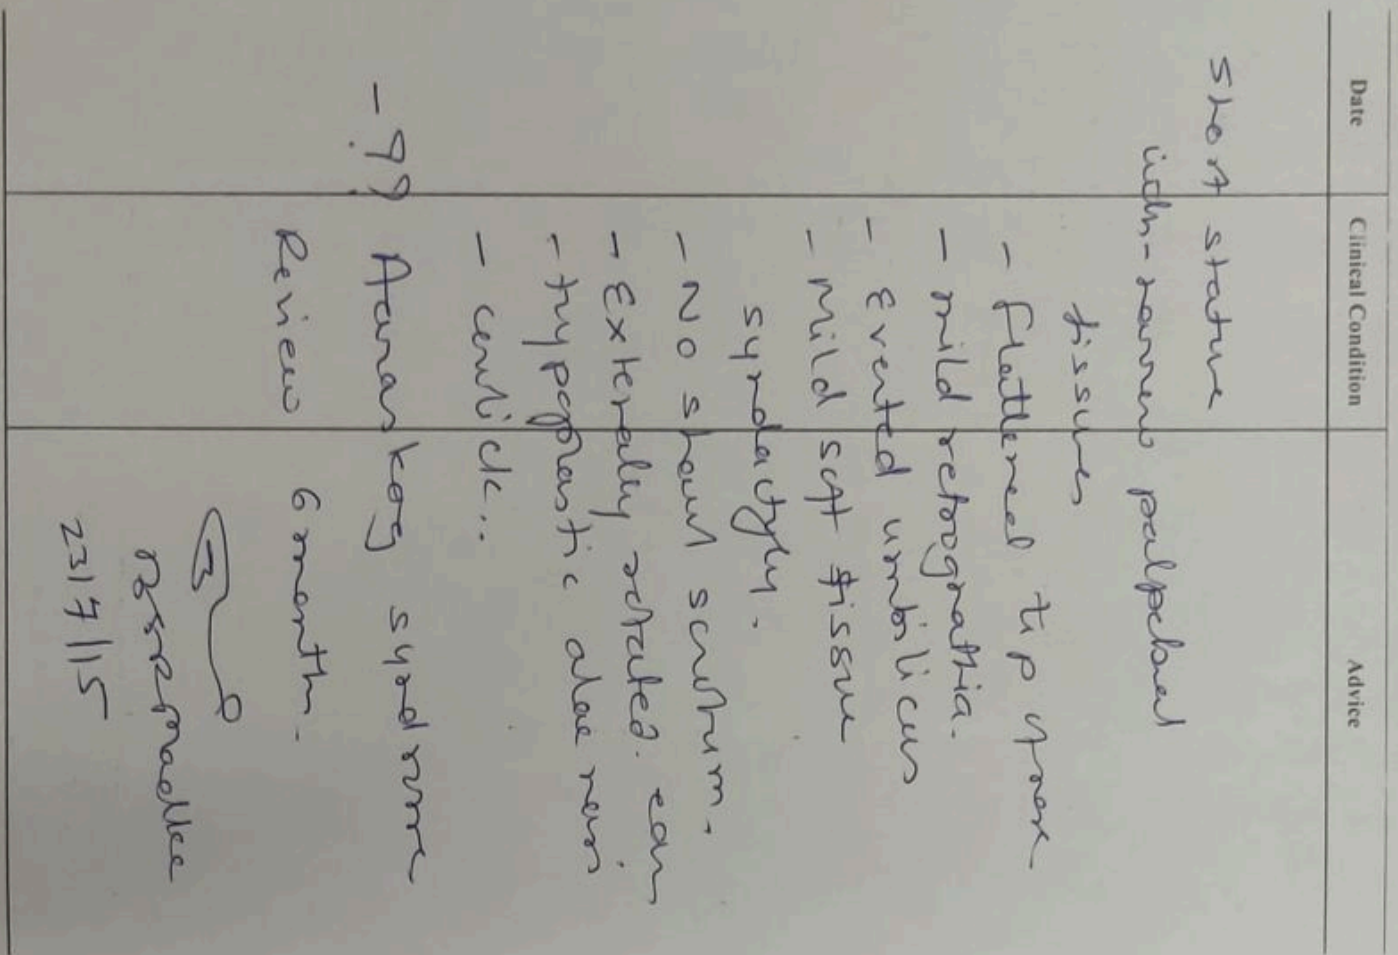 Date Clinical Condition Advice
Short stature
with narrow palpebral
fissures
- flattened tip of nose
- mild retrognathia.
- Everted umbilicus
- Mild soft tissue
syndactyly.
- No shawl scrotum.
- Externally rotated ear
- Hypoplastic alae nasi
-
- ?? Aaras kog syndrome
Review 6 month.
23/7/15